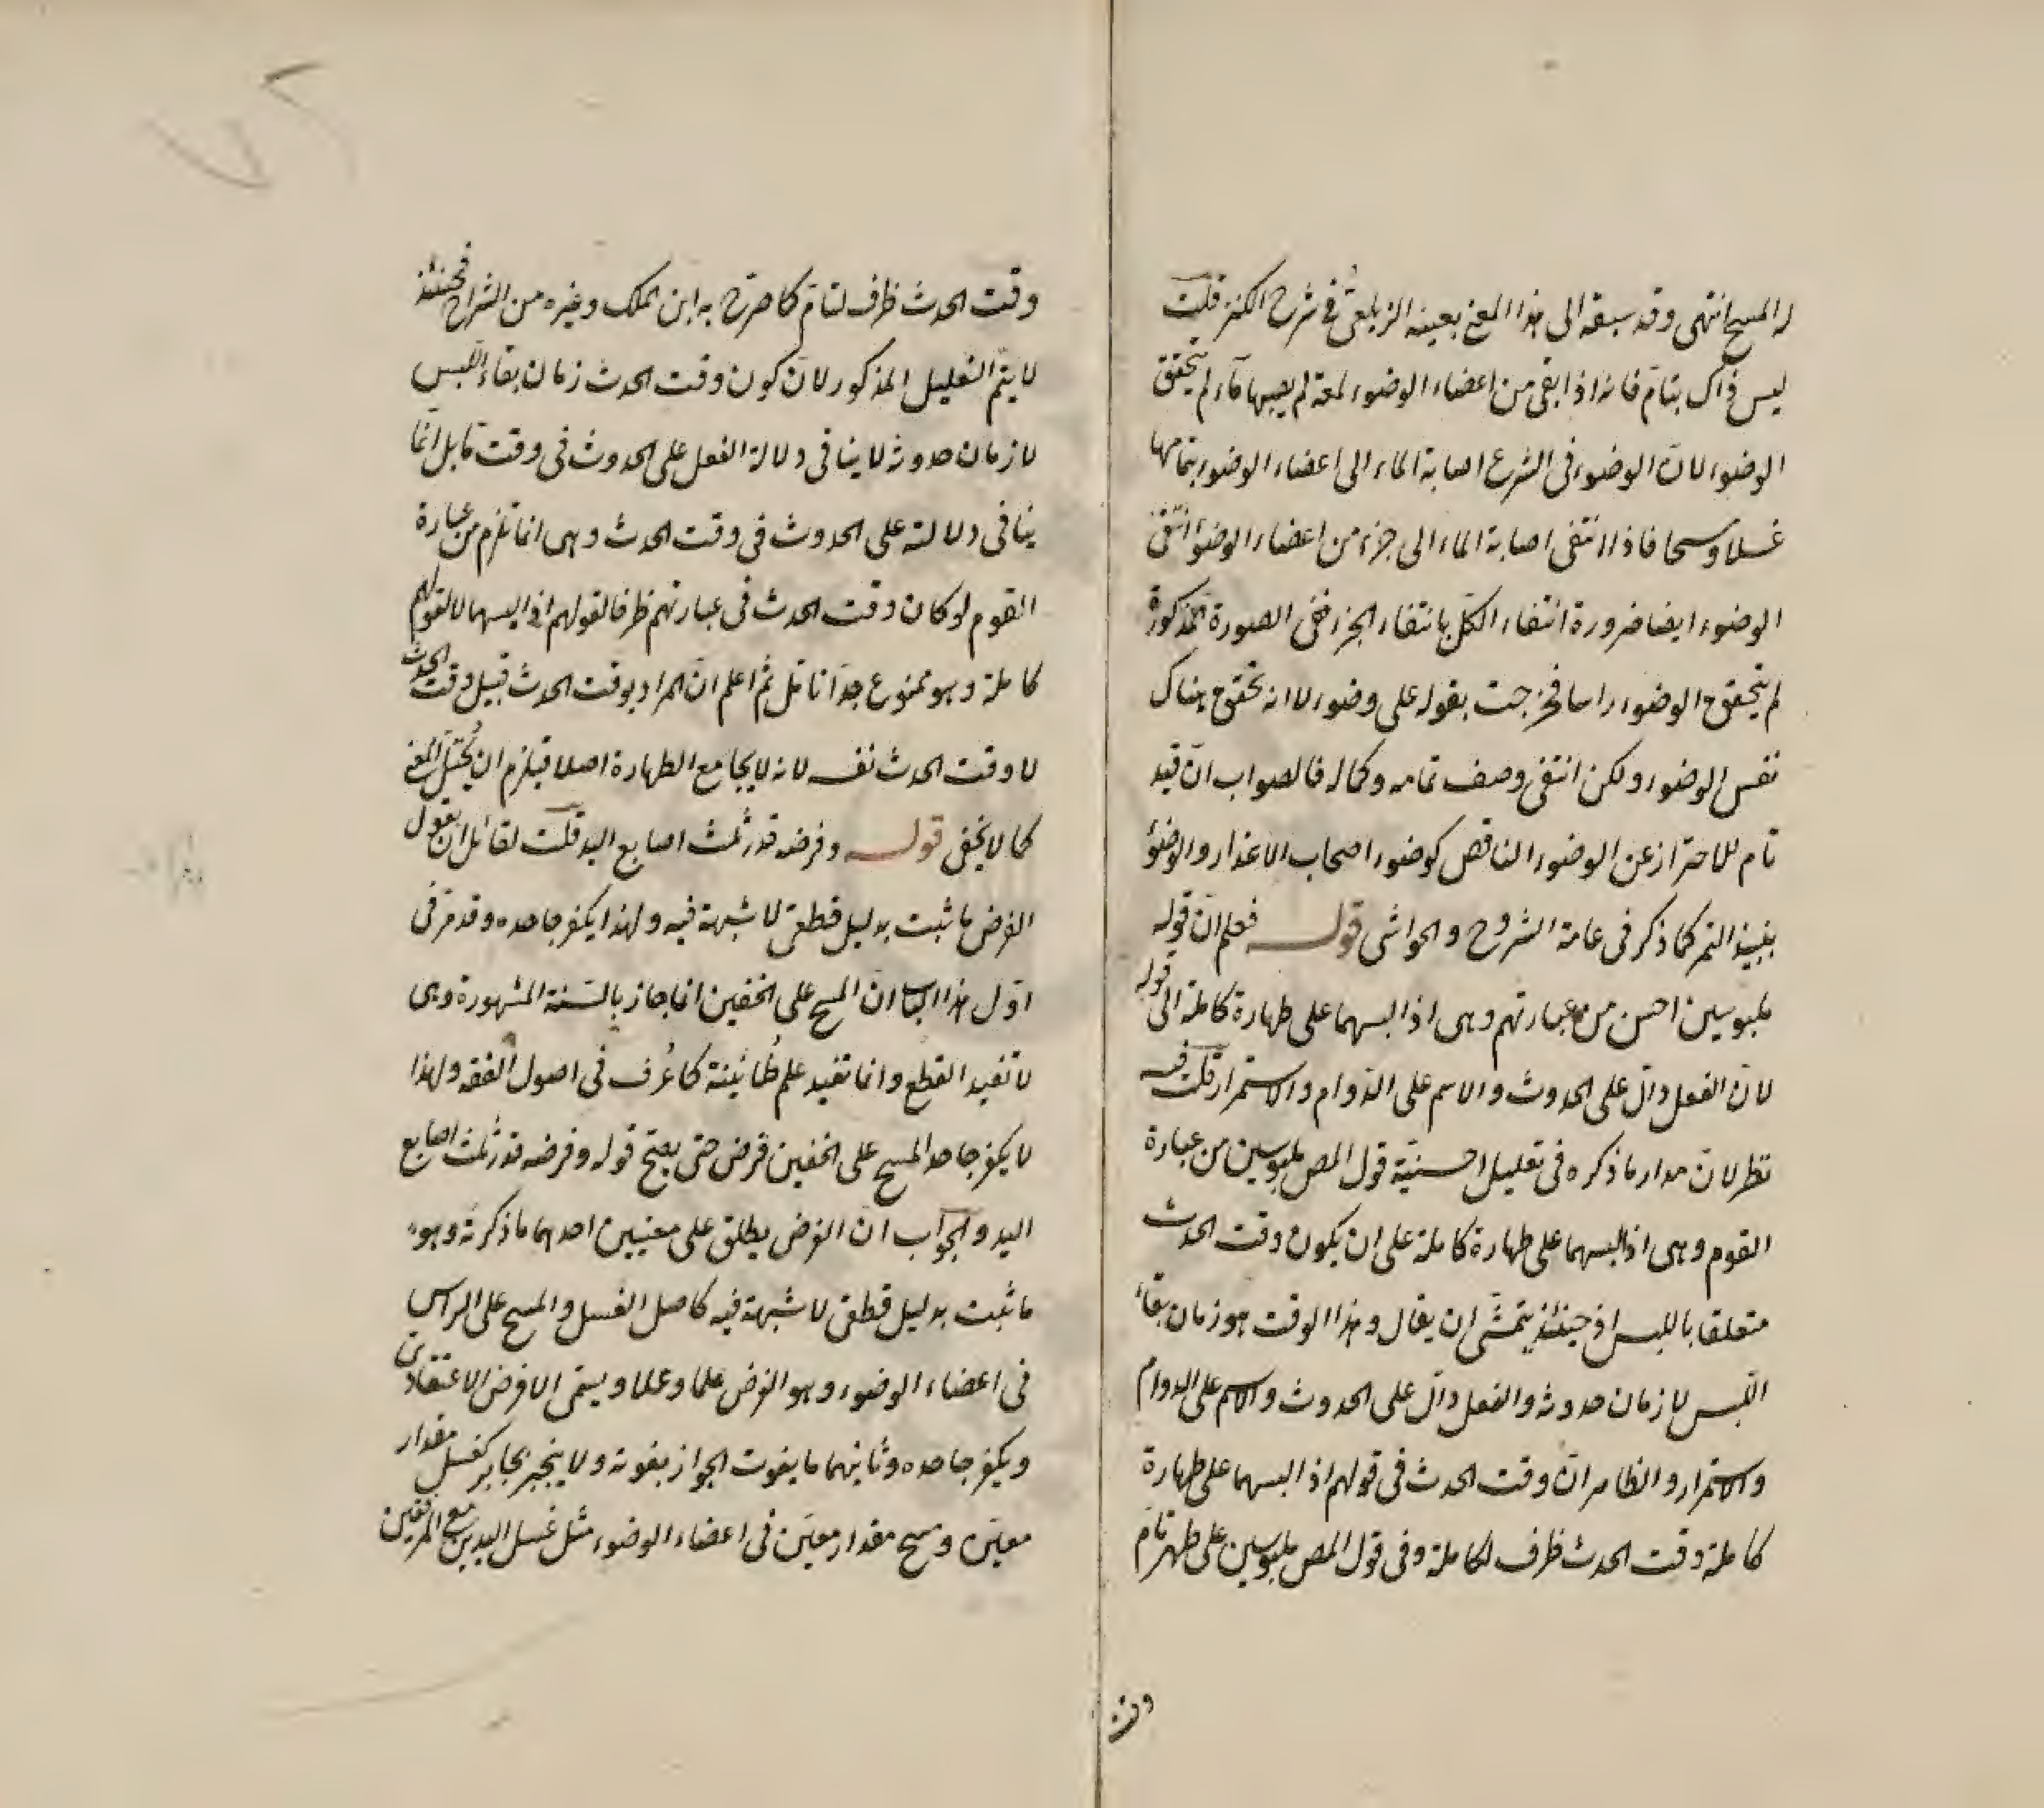 له المسح انتهى وقد سبقه الى هذا المعنى بعينه الزيلعى فى شرح الكنز قلت
ليس ذاك بتام فانه اذا بقى من اعضاء الوضوء لمعة لم يصبها ماء لم يتحقق
الوضوء لان الوضوء فى الشرع اصابة الماء الى اعضاء الوضوء بتمامها
غسلا ومسحا فاذا انتفى اصابة الماء الى جزء من اعضاء الوضوء انتفى
الوضوء ايضا ضرورة انتفاء الكل بانتفاء الجزء ففى الصورة المذكورة
لم يتحقق الوضوء راسا فخرجت بقوله على وضوء لا انه تحقق هناك
نفس الوضوء ولكن انتفى وصف تمامه وكماله فالصواب ان قيد
تام للاحتراز عن الوضوء الناقص كوضوء اصحاب الاعذار والوضوء
بنبيذ التمر كما ذكر فى عامة الشروح والحواشى قوله فعلم ان قوله
ملبوسين احسن من عبارتهم وهى اذا لبسهما على طهارة كاملة الى قوله
لان الفعل دال على الحدوث والاسم على الدوام والاستمرار قلت فيه
نظر لان مدار ما ذكره فى تعليل احسنية قول المص ملبوسين من عبارة
القوم وهى اذا لبسهما على طهارة كاملة على ان يكون وقت الحدث
متعلقا باللبس اذ حينئذ يتمشى ان يقال وهذا الوقت هو زمان بقاء
اللبس لا زمان حدوثه والفعل دال على الحدوث والاسم على الدوام
والاستمرار والظاهر ان وقت الحدث فى قولهم اذا لبسهما على طهارة
كاملة وقت الحدث ظرف لكاملة وفى قول المص ملبوسين على طهر تام
وقت
وقت الحدث ظرف لتام كما صرح به ابن الملك وغيره من الشراح فحينئذ
لا يتم التعليل المذكور لان كون وقت الحدث زمان بقاء اللبس
لا زمان حدوثه لا ينافى دلالة الفعل على الحدوث فى وقت ما بل انما
ينافى دلالته على الحدوث فى وقت الحدث وهى انما تلزم من عبارة
القوم لو كان وقت الحدث فى عبارتهم ظرفا لقولهم اذا لبسهما لا لقولهم
كاملة وهو ممنوع جدا تامل ثم اعلم ان المراد بوقت الحدث قبيل وقت الحدث
لا وقت الحدث نفسه لانه لا يجامع الطهارة اصلا فيلزم ان يختل المعنى
كما لا يخفى قوله وفرضه قدر ثلث اصابع اليد قلت لقائل ان يقول
الفرض ما ثبت بدليل قطعى لا شبهة فيه ولهذا يكفر جاحده وقد مر فى
اول هذا الباب ان المسح على الخفين انما جاز بالسنة المشهورة وهى
لا تفيد القطع وانما تفيد علم طمانينة كما عرف فى اصول الفقه ولهذا
لا يكفر جاحد المسح على الخفين فرض حتى يصح قوله وفرضه قدر ثلث اصابع
اليد والجواب ان الفرض يطلق على معنيين احدهما ما ذكرته وهو
ما ثبت بدليل قطعى لا شبهة فيه كاصل الغسل والمسح على الراس
فى اعضاء الوضوء وهو الفرض علما وعملا ويسمى الفرض الاعتقادى
ويكفر جاحده وثانيهما ما يفوت الجواز بفوته ولا ينجبر بجابر كغسل مقدار
معين ومسح مقدار معين فى اعضاء الوضوء مثل غسل اليدين مع المرفقين